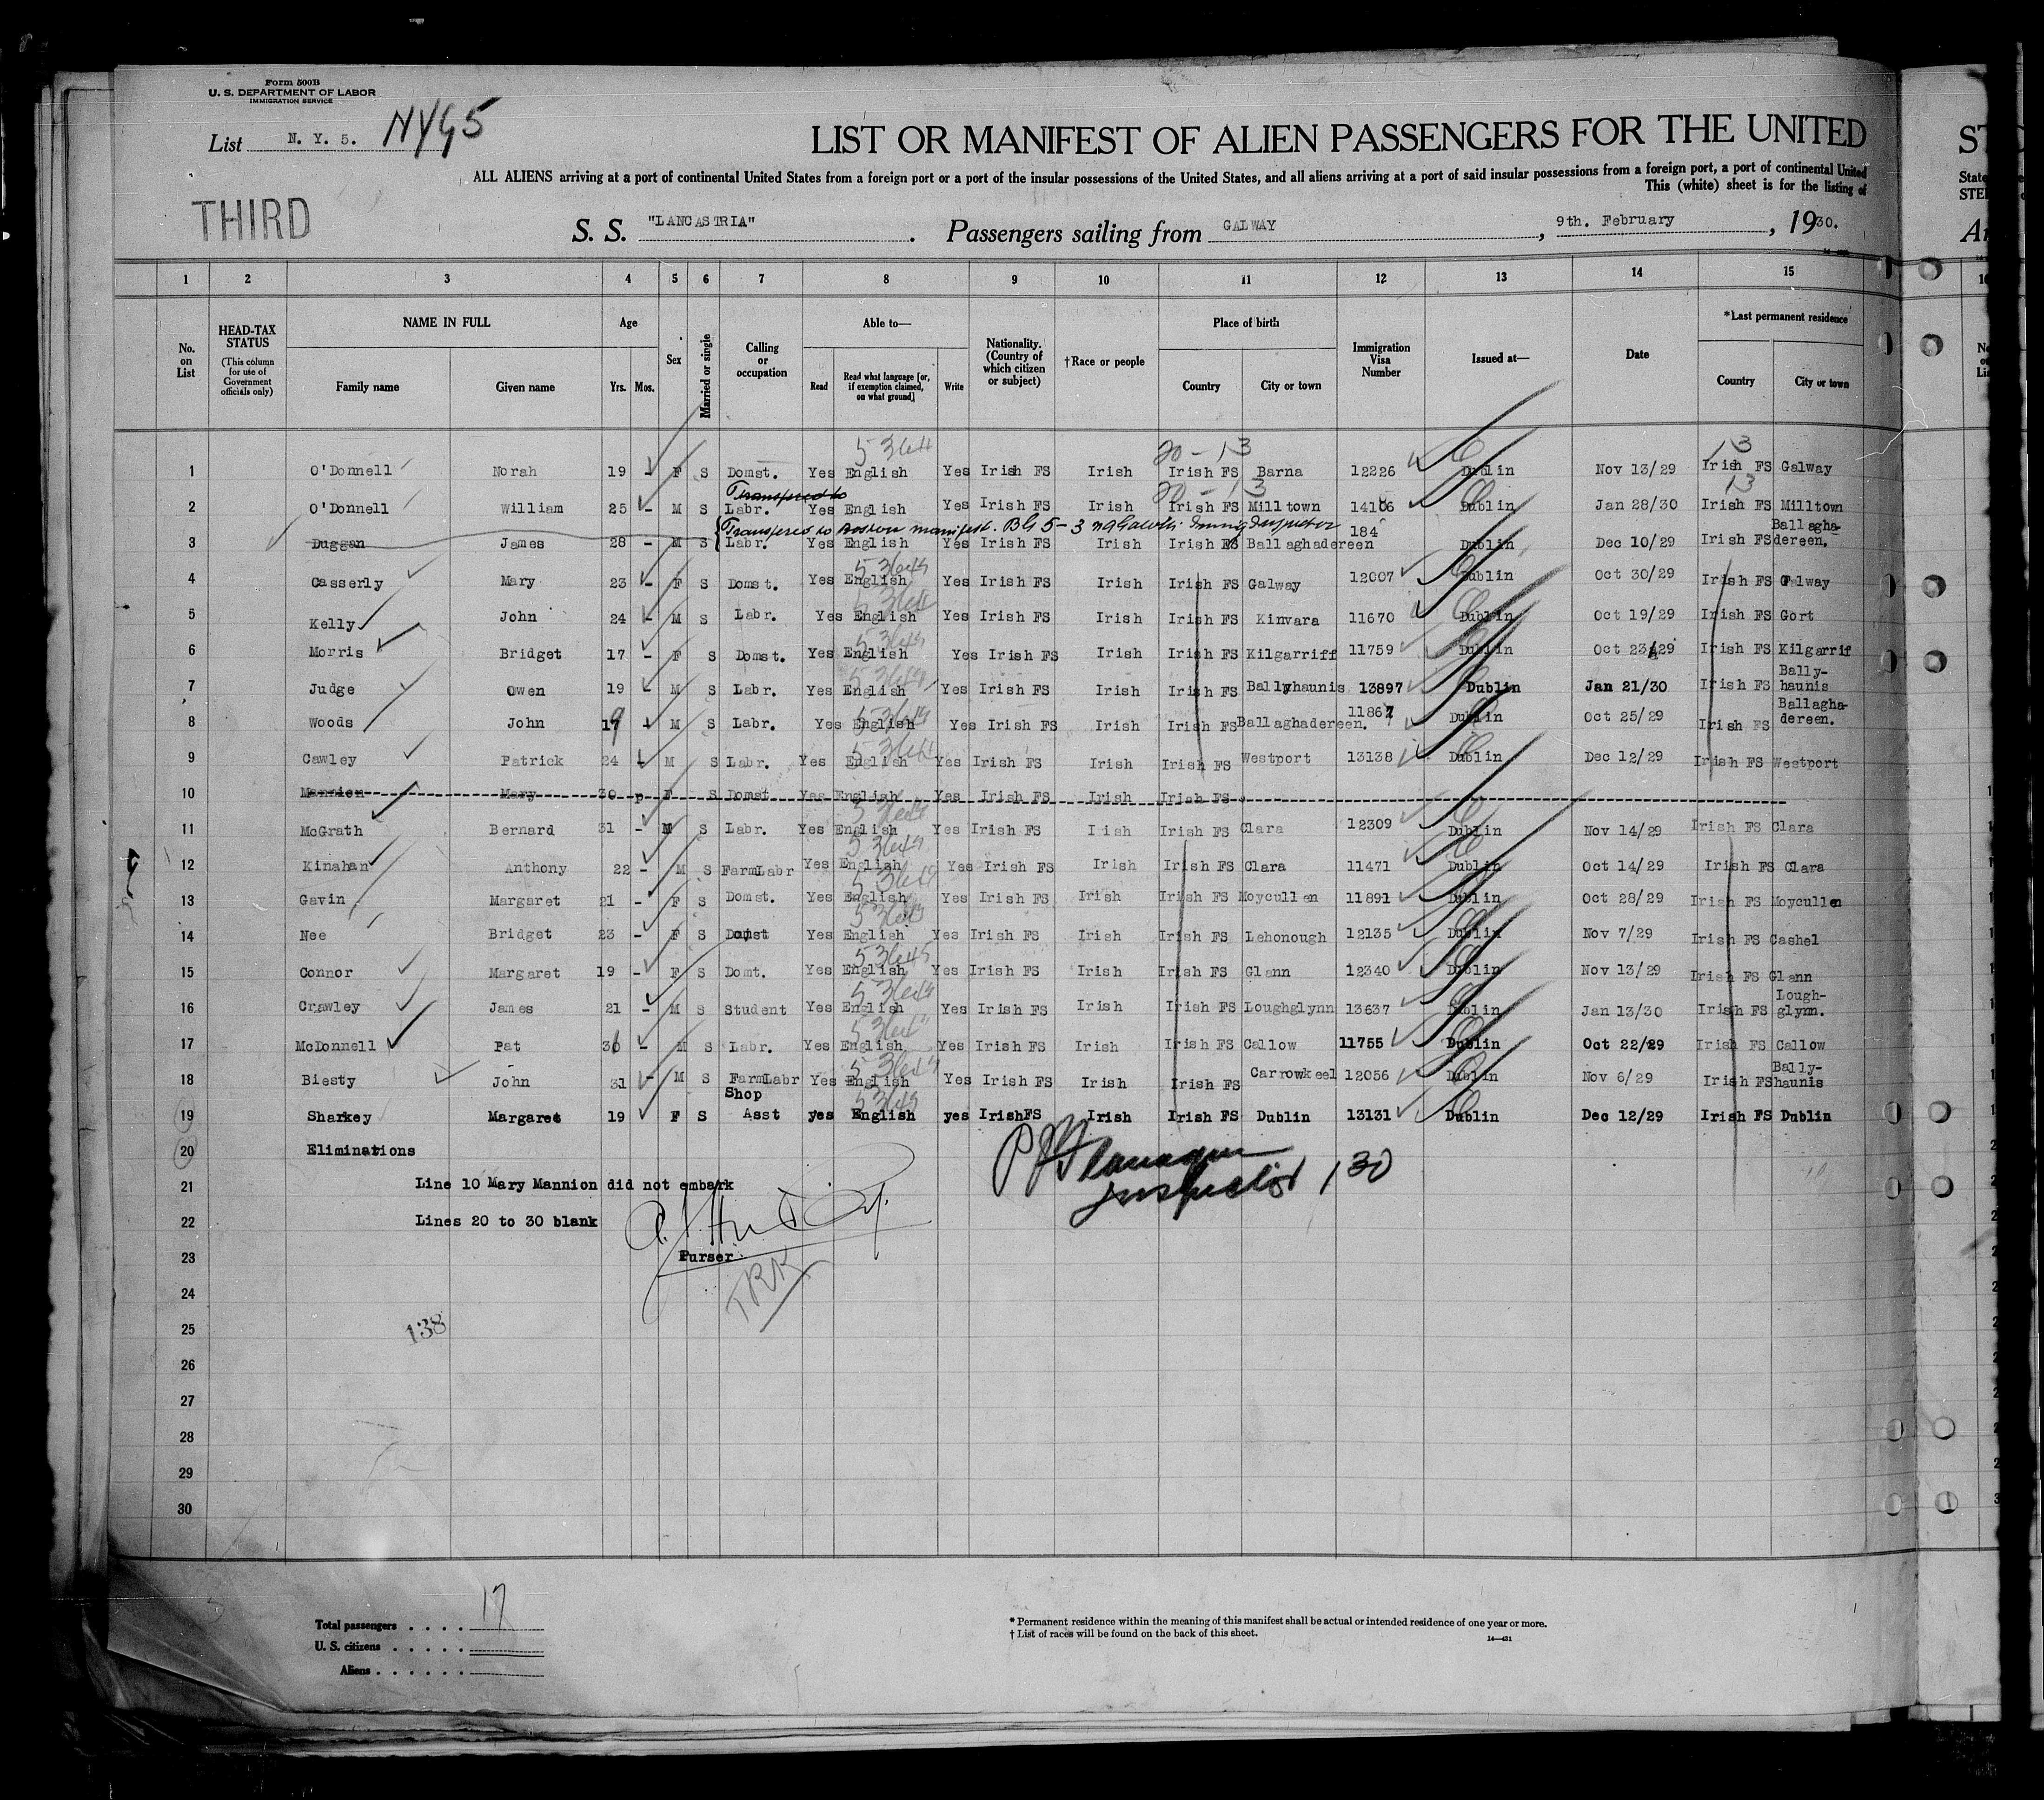 Form 500B
U. S. DEPARTMENT OF LABOR
IMMIGRATION SERVICE
List N. Y. 5. NYG5
LIST OR MANIFEST OF ALIEN PASSENGERS FOR THE UNITED
ALL ALIENS arriving at a port of continental United States from a foreign port or a port of the insular possessions of the United States, and all aliens arriving at a port of said insular possessions from a foreign port, a port of continental United
This (white) sheet is for the listing of
THIRD
S. S. "LANCASTRIA". Passengers sailing from GALWAY, 9th. February, 1930.
1 2 3 4 5 6 7 8 9 10 11 12 13 14 15
No. on List
HEAD-TAX STATUS (This column for use of Government officials only)
NAME IN FULL Family name Given name
Age Yrs. Mos.
Sex
Married or single
Calling or occupation
Able to— Read Read what language [or, if exemption claimed, on what ground] Write
Nationality. (Country of which citizen or subject)
†Race or people
Place of birth Country City or town
Immigration Visa Number
Issued at—
Date
*Last permanent residence Country City or town
5364 20-13 13
1 O'Donnell Norah 19 - F S Domst. Yes English Yes Irish FS Irish Irish FS Barna 12226 Dublin Nov 13/29 Irish FS Galway
Transfered to 20-13 13
2 O'Donnell William 25 - M S Labr. Yes English Yes Irish FS Irish Irish FS Milltown 14106 Dublin Jan 28/30 Irish FS Milltown
Transfered to Boston manifest. BG 5-3 Immig Inspector
3 Duggan James 28 - M S Labr. Yes English Yes Irish FS Irish Irish FS Ballaghadereen 184 Dublin Dec 10/29 Irish FS Ballaghadereen.
4 Casserly Mary 23 - F S Domst. Yes English Yes Irish FS Irish Irish FS Galway 12007 Dublin Oct 30/29 Irish FS Galway
5 Kelly John 24 - M S Labr. Yes English Yes Irish FS Irish Irish FS Kinvara 11670 Dublin Oct 19/29 Irish FS Gort
6 Morris Bridget 17 - F S Domst. Yes English Yes Irish FS Irish Irish FS Kilgarriff 11759 Dublin Oct 23/29 Irish FS Kilgarrif
7 Judge Owen 19 - M S Labr. Yes English Yes Irish FS Irish Irish FS Ballyhaunis 13897 Dublin Jan 21/30 Irish FS Bally-haunis
8 Woods John 19 - M S Labr. Yes English Yes Irish FS Irish Irish FS Ballaghadereen. 11867 Dublin Oct 25/29 Irish FS Ballagha-dereen.
9 Cawley Patrick 24 - M S Labr. Yes English Yes Irish FS Irish Irish FS Westport 13138 Dublin Dec 12/29 Irish FS Westport
10 Mannion Mary 30 F S Domst Yes English Yes Irish FS Irish Irish FS
11 McGrath Bernard 31 - M S Labr. Yes English Yes Irish FS Irish Irish FS Clara 12309 Dublin Nov 14/29 Irish FS Clara
12 Kinahan Anthony 22 - M S FarmLabr Yes English Yes Irish FS Irish Irish FS Clara 11471 Dublin Oct 14/29 Irish FS Clara
13 Gavin Margaret 21 - F S Domst. Yes English Yes Irish FS Irish Irish FS Moycullen 11891 Dublin Oct 28/29 Irish FS Moycullen
14 Nee Bridget 23 - F S Domst Yes English Yes Irish FS Irish Irish FS Lehonough 12135 Dublin Nov 7/29 Irish FS Cashel
15 Connor Margaret 19 - F S Domt. Yes English Yes Irish FS Irish Irish FS Glann 12340 Dublin Nov 13/29 Irish FS Glann
16 Crawley James 21 - M S Student Yes English Yes Irish FS Irish Irish FS Loughglynn 13637 Dublin Jan 13/30 Irish FS Lough-glynn.
17 McDonnell Pat 36 - M S Labr. Yes English Yes Irish FS Irish Irish FS Callow 11755 Dublin Oct 22/29 Irish FS Callow
18 Biesty John 31 - M S FarmLabr Yes English Yes Irish FS Irish Irish FS Carrowkeel 12056 Dublin Nov 6/29 Irish FS Bally-haunis
19 Sharkey Margaret 19 F S Shop Asst yes English yes IrishFS Irish Irish FS Dublin 13131 Dublin Dec 12/29 Irish FS Dublin
20 Eliminations
P J Flanagan
Inspector 130
21 Line 10 Mary Mannion did not embark
22 Lines 20 to 30 blank
23 Purser
TRK
24
25 138
26
27
28
29
30
Total passengers . . . . 17
U. S. citizens . . . . .
Aliens . . . . . .
* Permanent residence within the meaning of this manifest shall be actual or intended residence of one year or more.
† List of races will be found on the back of this sheet.
14—421